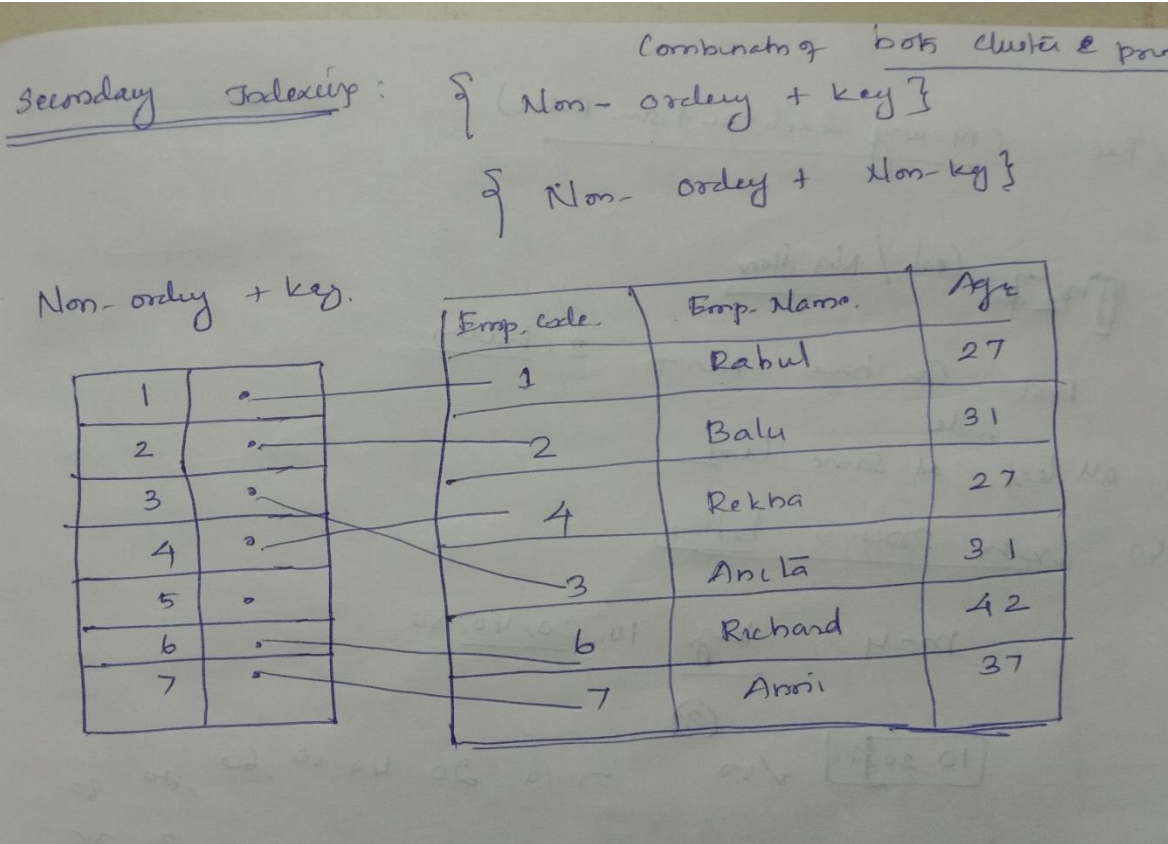 Combinatn of both cluster &
Secondary Indexing : { Non-ordery + key }
{ Non-ordey + Non-key }
Non-ordey + key.
Emp. code. Emp. Name. Age
1 Rahul 27
2 Balu 31
4 Rekha 27
3 Ancita 31
6 Richard 42
7 Anni 37
1
2
3
4
5
6
7